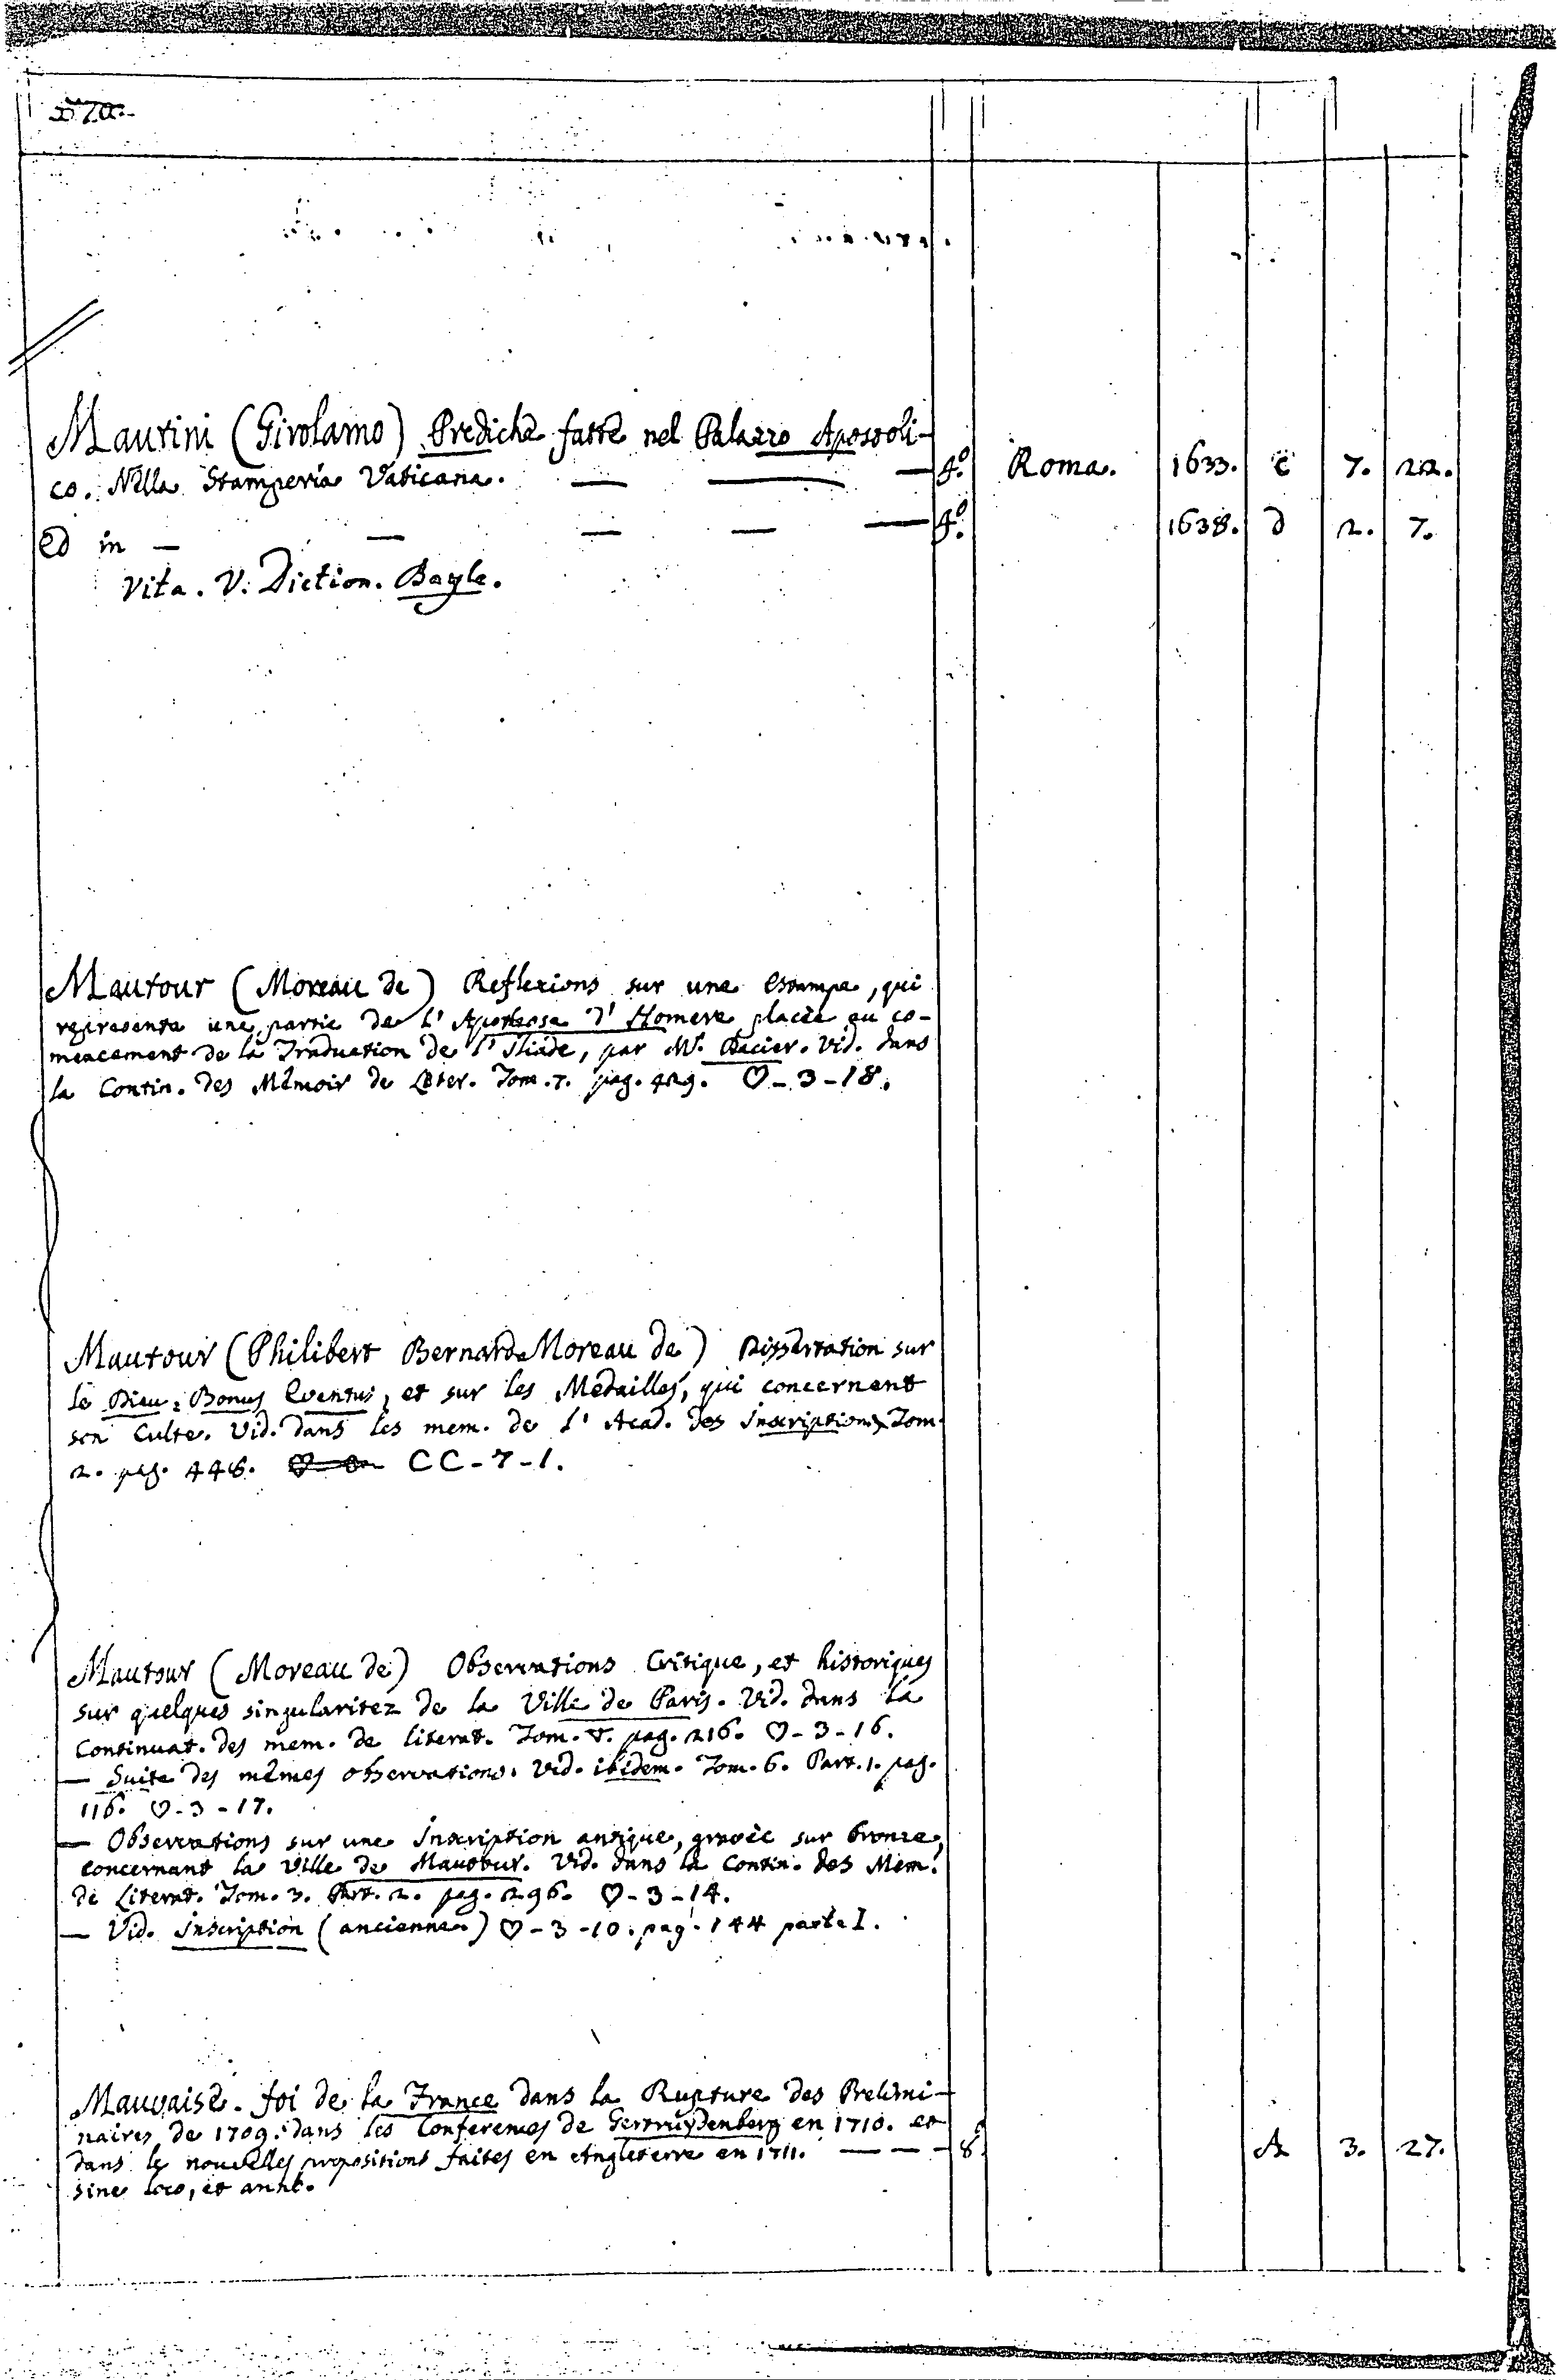 Mautini (Girolamo) Prediche fatte nel Palazzo Apostoli-
co. Nella Stamperia Vaticana. — — — 4.o Roma. 1633. C 7. 22.
Ed in — — — — — 4.o 1638. d 2. 7.
Vita. V. Diction. Bayle.
Mautour (Moreau de) Reflexions sur une Estampe, qui
represente une partie de l' Apotheose d' Homere placèe au co-
mencement de la Traduction de l' Iliade, par Mr. Dacier. Vid. dans
la Contin. des Mêmoir de Liter. Tom. 7. pag. 429. ♡-3-18.
Mautour (Philibert Bernard Moreau de) Dissertation sur
le Dieu: Bonus Eventus, et sur les Medailles, qui concernent
son Culte. Vid. dans les mem. de l' Acad. des Inscriptions Tom.
2. pag. 446. CC-7-1.
Mautour (Moreau de) Observations Critique, et historiques
sur quelques singularitez de la Ville de Paris. Vid. dans la
Continuat. des mem. de literat. Tom. V. pag. 216. ♡-3-16.
— Suite des mêmes observations. Vid. ibidem. Tom. 6. Part. 1. pag.
116. ♡-3-17.
— Observations sur une Inscription antique, gravèe sur bronze,
concernant la Ville de Mautour. Vid. dans la Contin. des Mem.
de Literat. Tom. 3. Part. 2. pag. 296. ♡-3-14.
— Vid. Inscription (ancienne) ♡-3-10. pag. 144 parte I.
Mauvaise foi de la France dans la Rupture des Prelimi-
naires de 1709. dans les Conferences de Gertruydenberg en 1710. et
dans les nouvelles propositions faites en Angleterre en 1711. — — — 8.o A 3. 27.
sine loco, et anno.